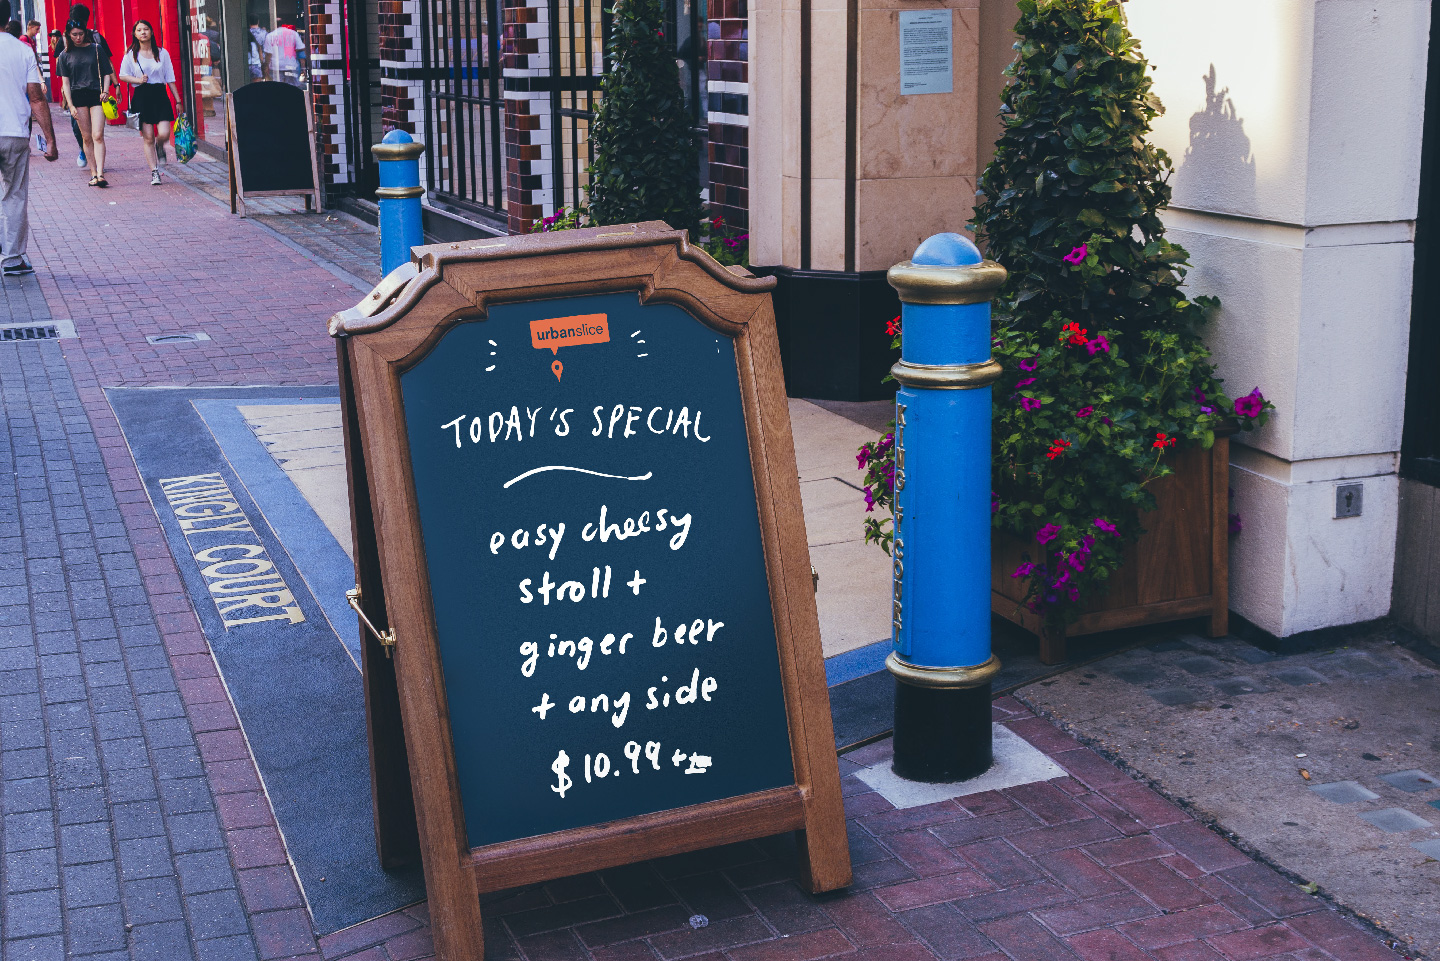 urbanslice
TODAY'S SPECIAL
easy cheesy
stroll +
ginger beer
+ any side
$10.99 +
KINGLY COURT
KINGLY COURT